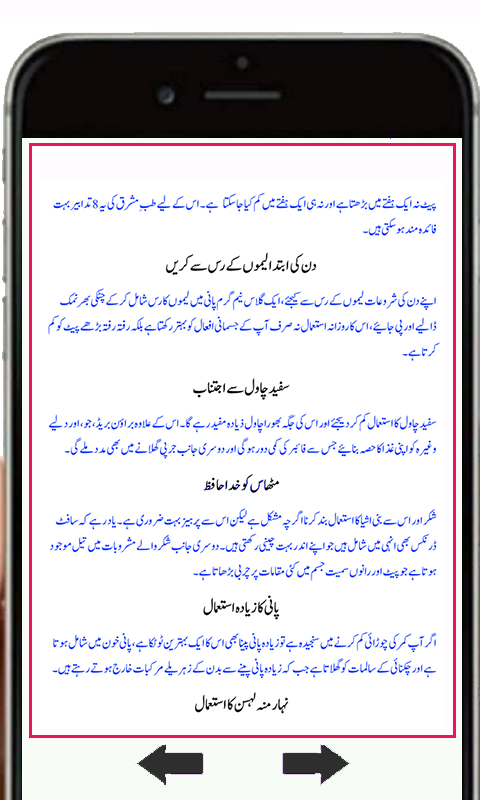 پیٹ نہ ایک ہفتے میں بڑھتا ہے اور نہ ہی ایک ہفتے میں کم کیا جا سکتا ہے۔ اس کے لیے طبِ مشرق کی یہ 8 تدابیر بہت
فائدہ مند ہو سکتی ہیں۔
دن کی ابتدا لیموں کے رس سے کریں
اپنے دن کی شروعات لیموں کے رس سے کیجئے، ایک گلاس نیم گرم پانی میں لیموں کا رس شامل کر کے چٹکی بھر نمک
ڈالیے اور پی جایئے، اس کا روزانہ استعمال نہ صرف آپ کے جسمانی افعال کو بہتر رکھتا ہے بلکہ رفتہ رفتہ بڑھے پیٹ کو کم
کرتا ہے۔
سفید چاول سے اجتناب
سفید چاول کا استعمال کم کر دیجئے اور اس کی جگہ بھورا چاول زیادہ مفید رہے گا۔ اس کے علاوہ براؤن بریڈ، جو، اور دلیے
وغیرہ کو اپنی غذا کا حصہ بنایئے جس سے فائبر کی کمی دور ہو گی اور دوسری جانب چربی گھلانے میں بھی مدد ملے گی۔
مٹھاس کو خدا حافظ
شکر اور اس سے بنی اشیا کا استعمال بند کرنا اگرچہ مشکل ہے لیکن اس سے پرہیز بہت ضروری ہے۔ یاد رہے کہ سافٹ
ڈرنکس بھی انہی میں شامل ہیں جو اپنے اندر بہت چینی رکھتی ہیں۔ دوسری جانب شکر والے مشروبات میں تیل موجود
ہوتا ہے جو پیٹ اور رانوں سمیت جسم میں کئی مقامات پر چربی بڑھاتا ہے۔
پانی کا زیادہ استعمال
اگر آپ کمر کی چوڑائی کم کرنے میں سنجیدہ ہے تو زیادہ پانی پینا بھی اس کا ایک بہترین ٹوٹکا ہے، پانی خون میں شامل ہوتا
ہے اور چکنائی کے سالمات کو گھلاتا ہے جب کہ زیادہ پانی پینے سے بدن کے زہریلے مرکبات خارج ہوتے رہتے ہیں۔
نہار منہ لہسن کا استعمال